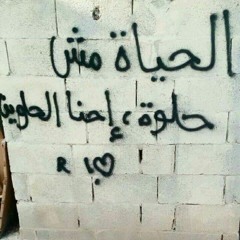 الحياة مش
حلوة، إحنا الحلوين
R I♡